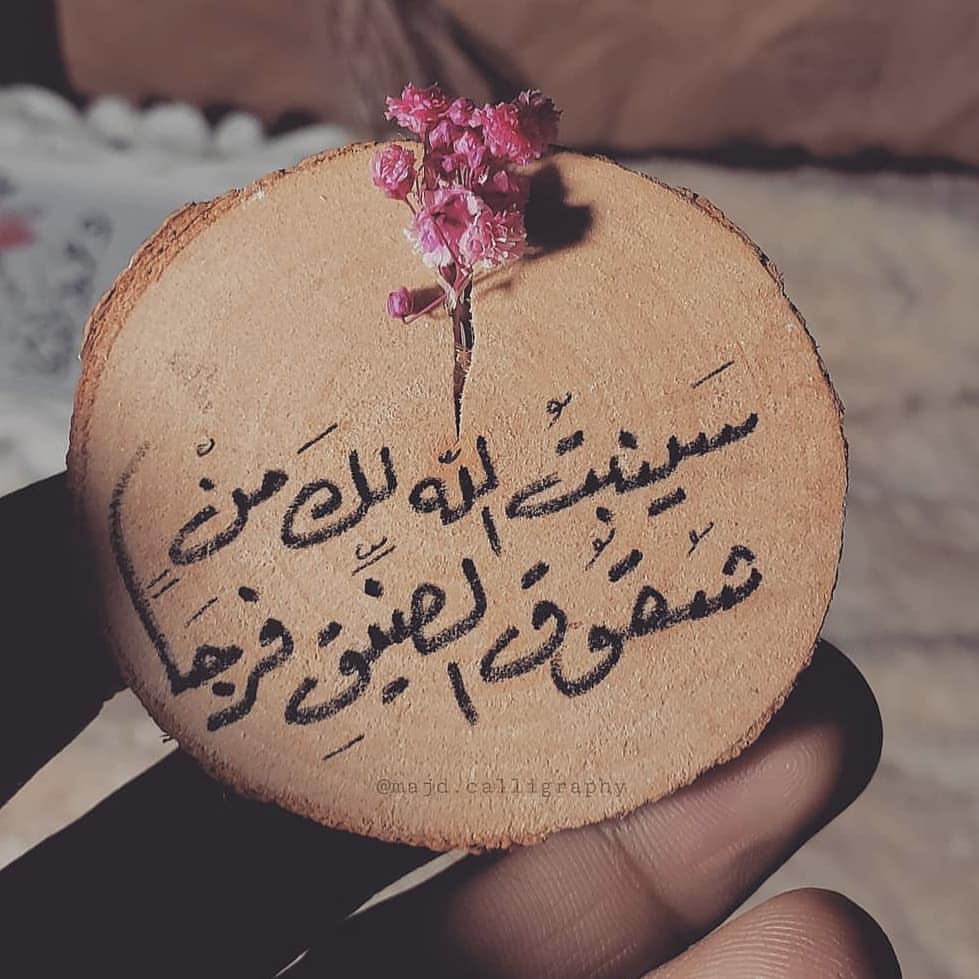 سَينبتُ اللّه لكَ مَنْ
شقُوق الضيّقِ فرجَاً
@majd.calligraphy